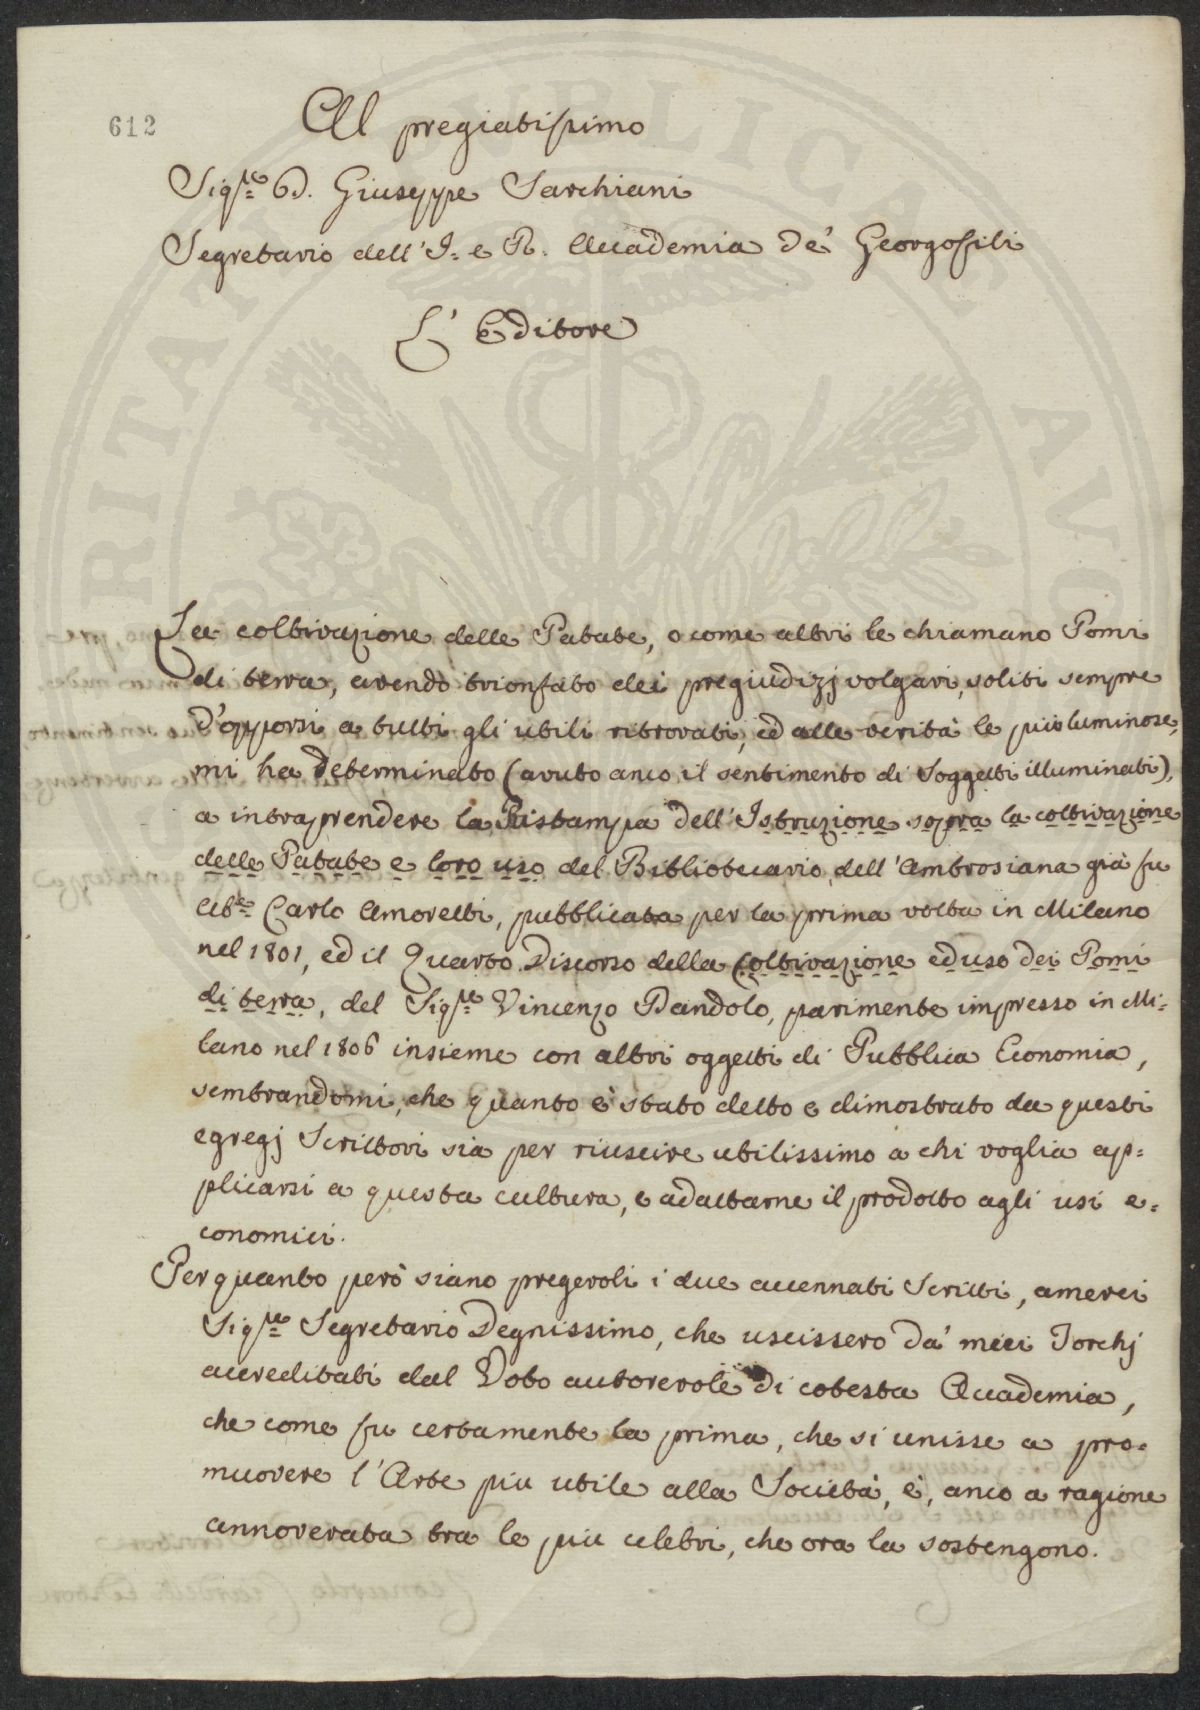 612
Al pregiatissimo
Sigre D. Giuseppe Sarchiani
Segretario dell'I. e R. Accademia de' Georgofili
L' Editore
La coltivazione delle Patate, o come altri le chiamano Pomi
di terra, avendo trionfato dei pregiudizj volgari, soliti sempre
d'opporsi a tutti gli utili ritrovati, ed alle verità le più luminose,
mi ha determinato (avuto anco il sentimento di Soggetti illuminati),
a intraprendere la Ristampa dell'Istruzione sopra la coltivazione
delle Patate e loro uso del Bibliotecario dell'Ambrosiana già fu
Abte Carlo Amoretti, pubblicata per la prima volta in Milano
nel 1801, ed il Quarto Discorso della Coltivazione ed uso dei Pomi
di terra, del Sigre Vincenzo Dandolo, parimente impresso in Mi=
lano nel 1806 insieme con altri oggetti di Pubblica Economia,
sembrandomi, che quanto è stato detto e dimostrato da questi
egregj Scrittori sia per riuscire utilissimo a chi voglia ap=
plicarsi a questa cultura, e adattarne il prodotto agli usi e=
conomici.
Per quanto però siano pregevoli i due accennati Scritti, amerei
Sigre Segretario Degnissimo, che uscissero da' miei Torchj
accreditati dal Voto autorevole di cotesta Accademia,
che come fu certamente la prima, che si unisse a pro=
muovere l'Arte più utile alla Società, è, anco a ragione
annoverata tra le più celebri, che ora la sostengono.